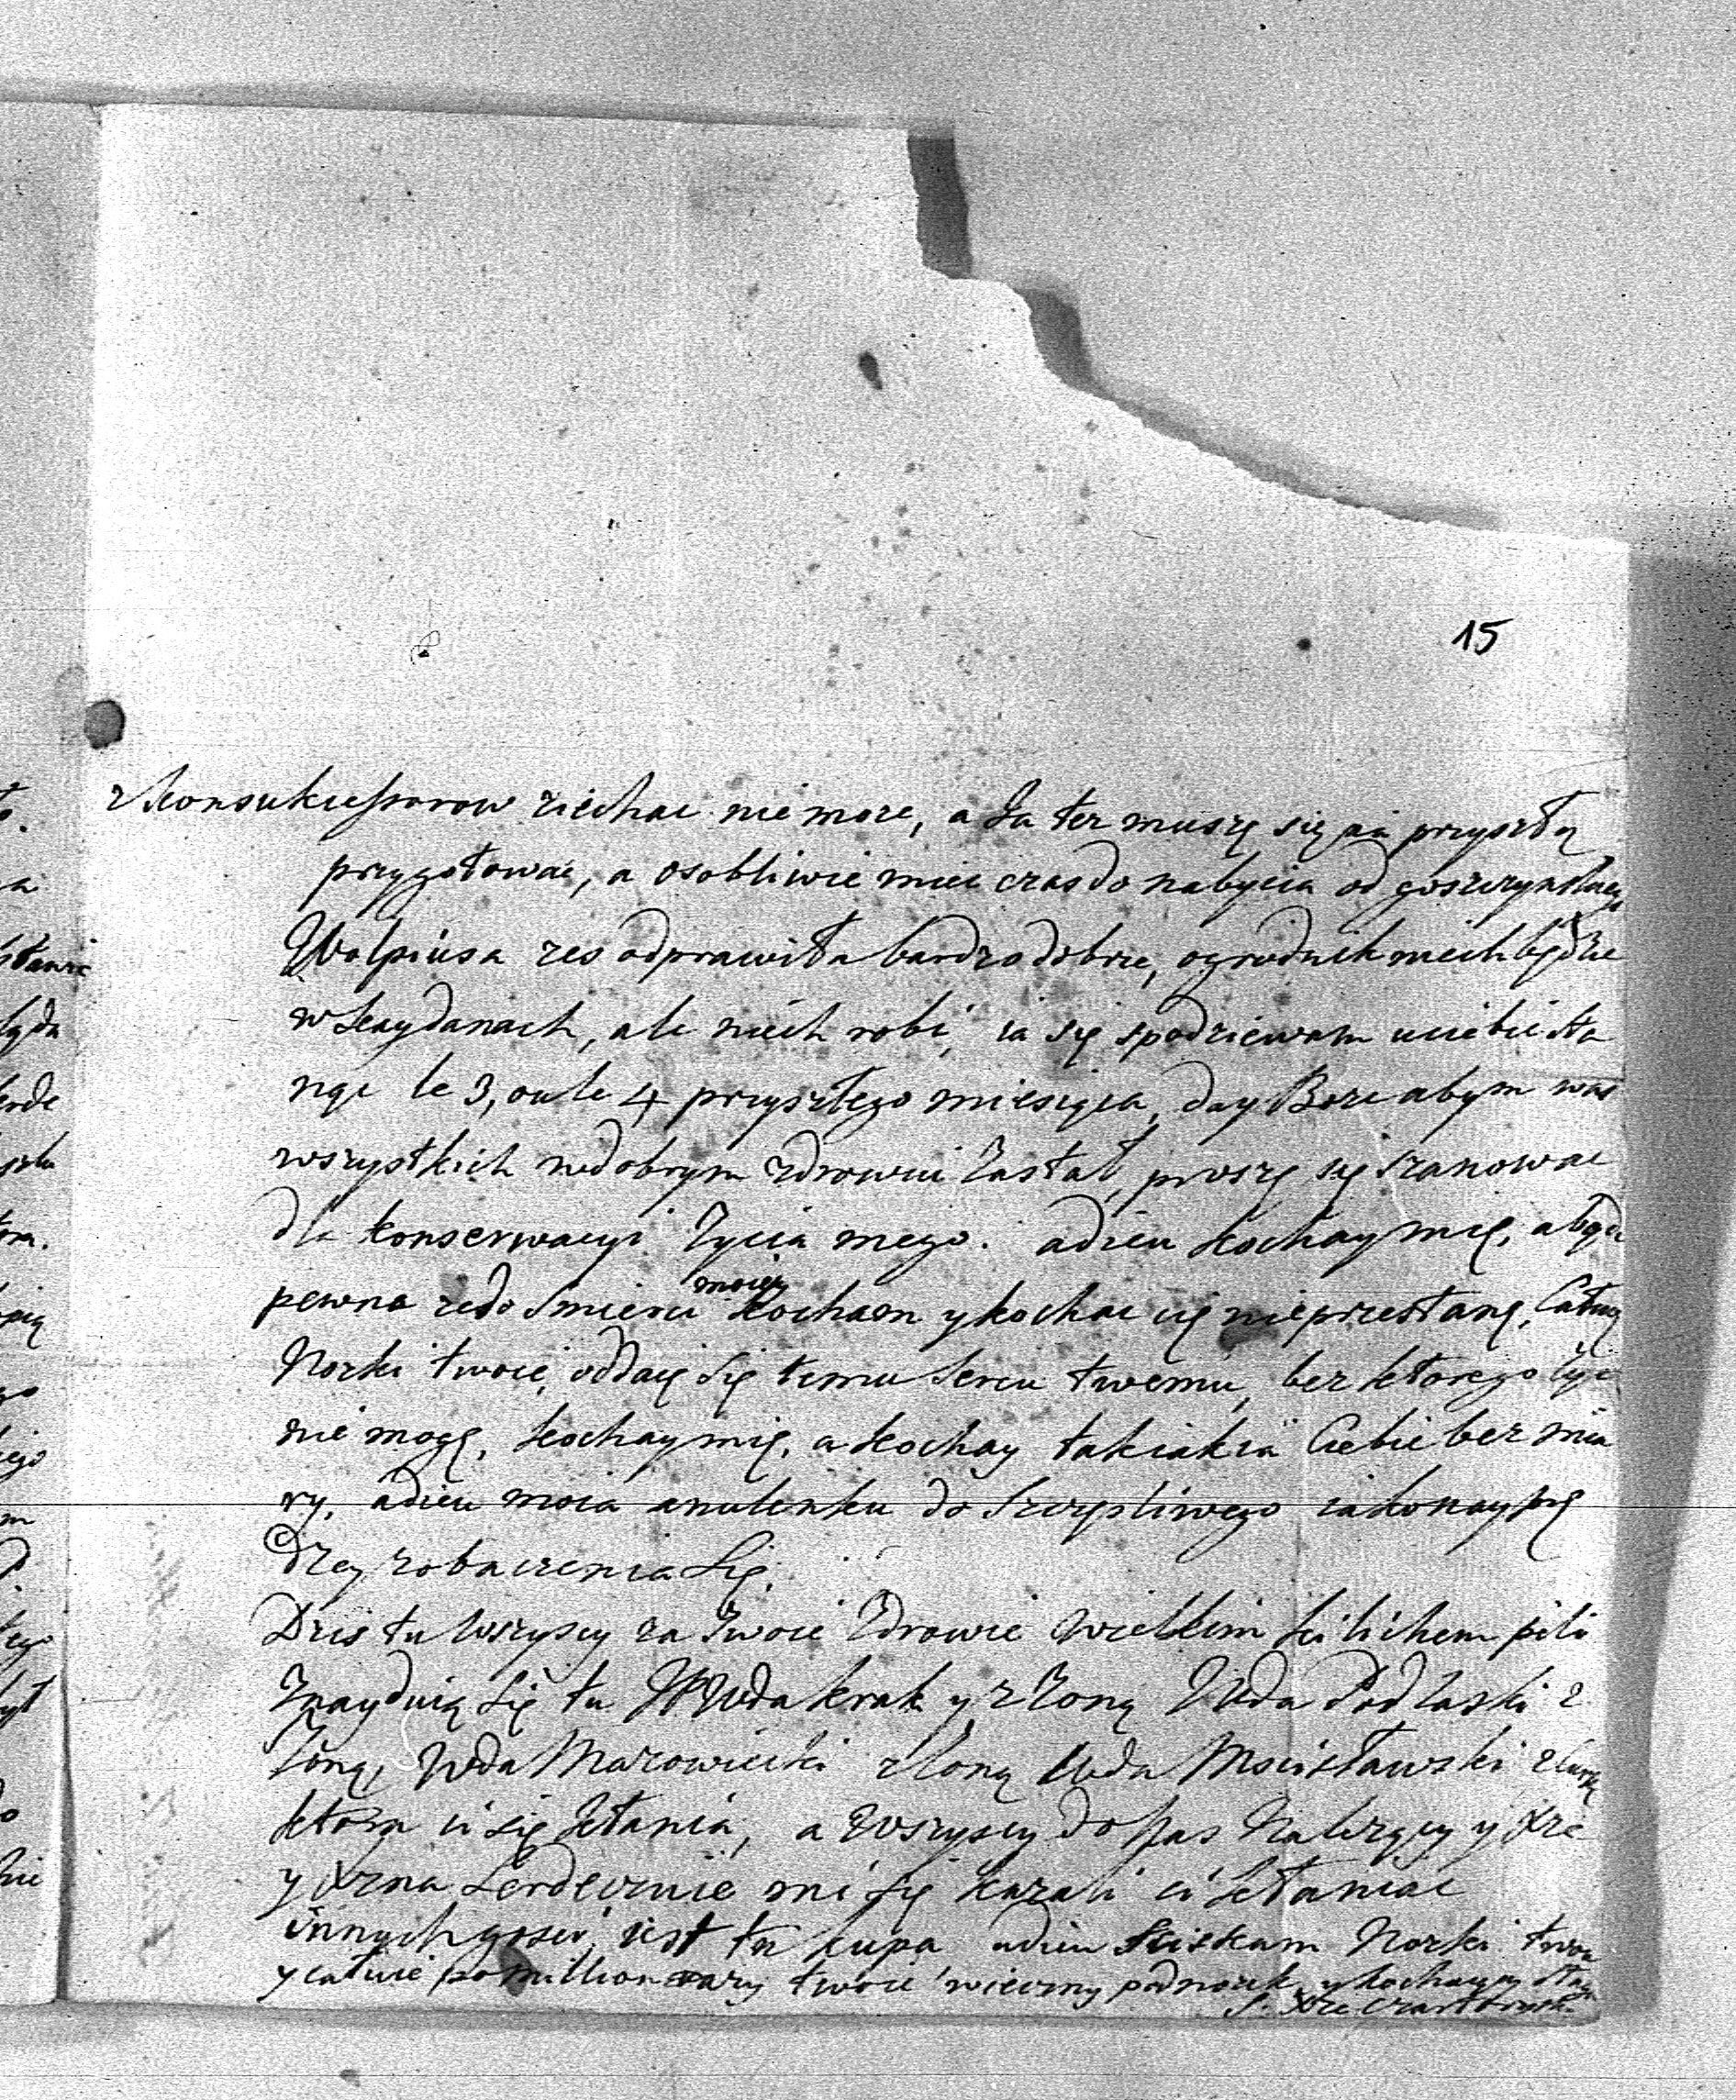 15
ziechac nie moze, a Ja tez muszę się na przyszłą
przygotowac, a osobliwie miec czas do nabycia od
Wolpiusa zes odprawiła bardzo dobrze, ogrodnik niech będzie
w Kaydanach, ale niech robi, ia się spodziewam u ciebie sta
nąc le 3, ou le 4 przyszłego miesiąca, day Boze abym was
wszystkich w dobrym zdrowiu zastał, proszę się szanowac
dla konserwacyi Zycia mego. adieu kochay mię, a bądz
pewna ze do smierci moiey Kocham y kochac cię nie przestanę, Całuię
Nozki twoie, oddaię się temu sercu twemu, bez ktorego zyc
nie mogę, kochay mię, a kochay tak iak ia Ciebie bez mia
ry, adieu moia anulenku do szczęsliwego iako nayprę
dzey zobaczenia się.
Dzis tu wszyscy za Twoie Zdrowie wielkim kilichem pili
Znayduią się tu Wda krak y z Zoną Wda Podlaski z
Zoną, Wda Mazowiecki z Zoną Wda Mscisławski z
ktora ci się kłania, a wszyscy do y Xże
y Xzna serdecznie mi się kazali ci kłaniac
innych gosci iest tu kupa adieu sciskam Nozki twoie
y całuię po million razy twoie wieczny podnozek y kochaiący sługa
Xże Czartoryski